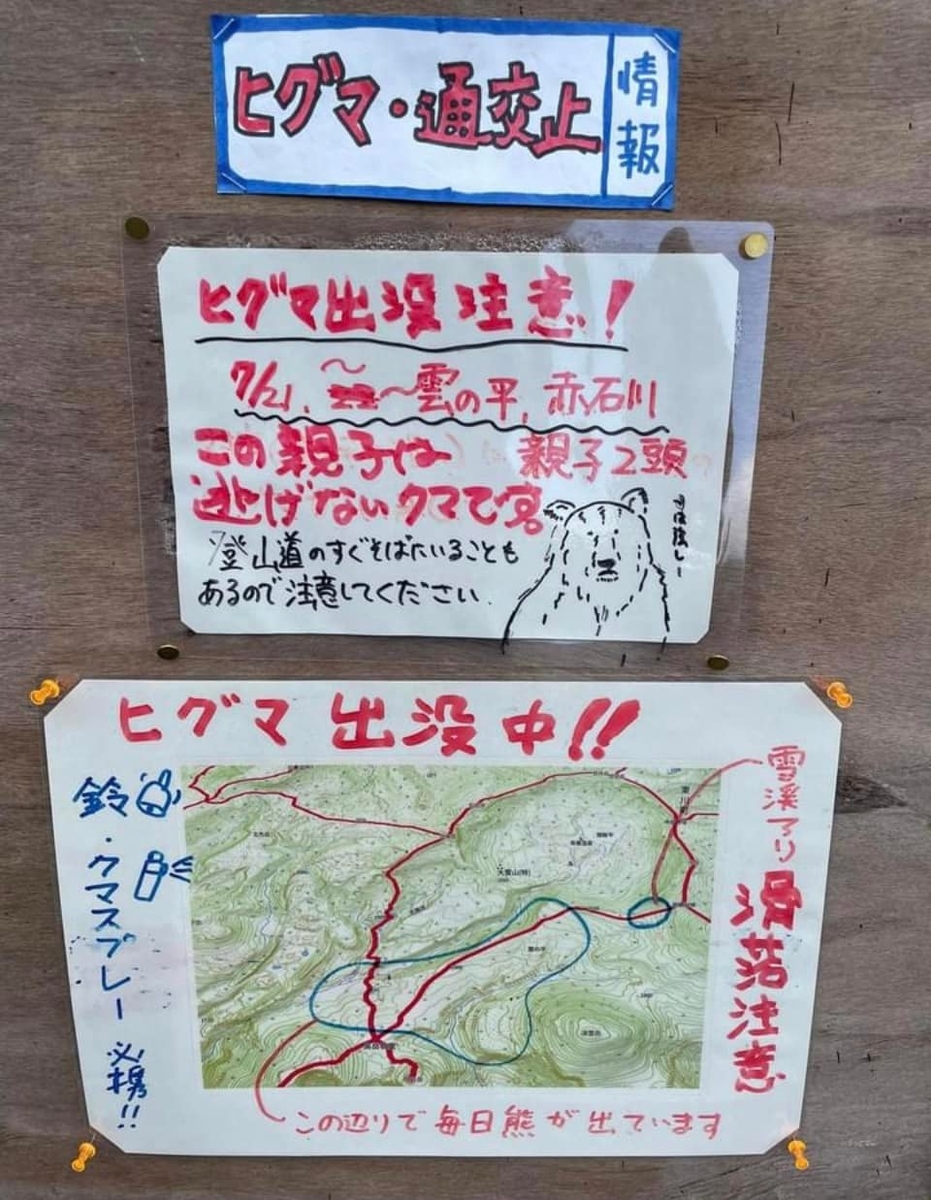 ヒグマ・通交止
情報
ヒグマ出没注意!
7/21、 〜雲の平, 赤石川
この親子は 親子2頭
逃げないクマです。
登山道のすぐそばにいることも
あるので注意してください.
ヒグマ 出没中!!
鈴・クマスプレー 必携!!
雪渓アリ
滑落注意
この辺りで毎日熊が出ています